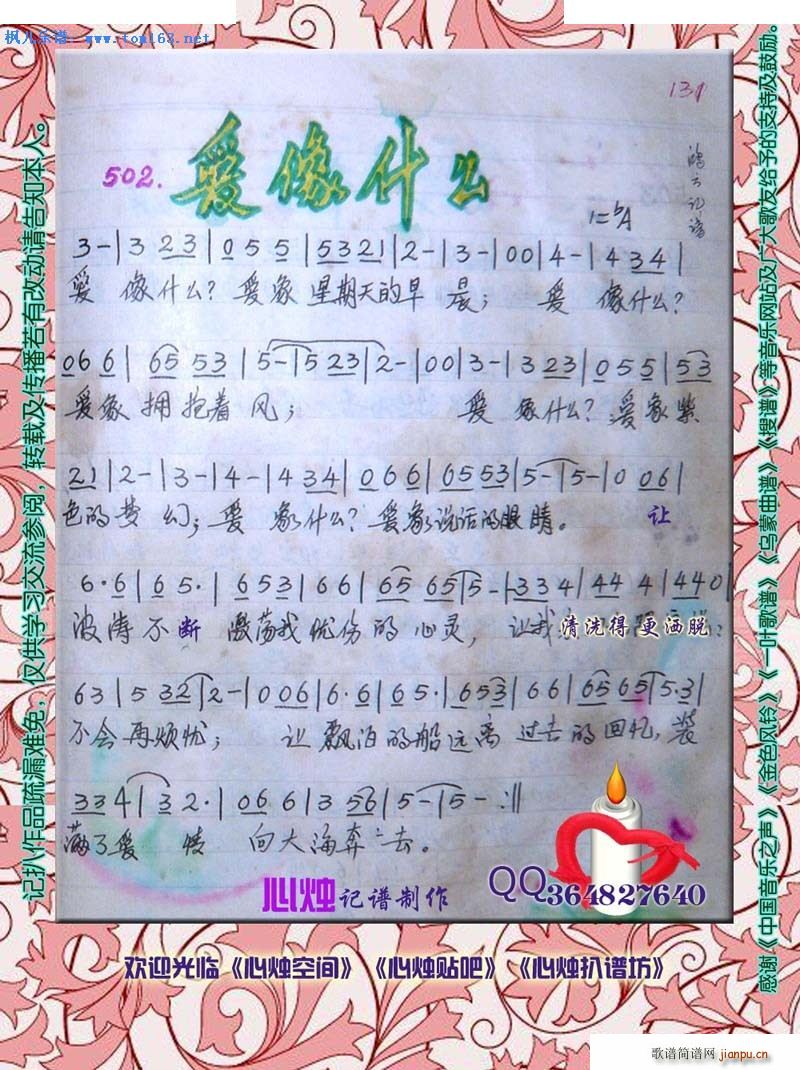 枫儿乐谱：www.tom163.net
131
502.
爱像什么
1=bA
3-|3 23|0 5 5|5321|2-|3-|00|4-|4 34|
爱 像什么? 爱象 星期天的早 晨; 爱 像什么?
06 6|65 53|5-|5 23|2-|00|3-|3 23|05 5|53
爱象 拥抱着 风; 爱 象什么? 爱象 紫
21|2-|3-|4-|4 34|06 6|6553|5-|5-|0 06|
色的梦 幻; 爱 象什么? 爱象说话的眼睛。 让
6·6|6 5·|6 53|66|65 65|5-|33 4|44 4|440|
波涛不断 激荡我忧伤的 心灵, 让我 清洗得更洒脱:
63|5 32|2-|0 06|6·6|65·|653|66|65 65|5·3|
不会再烦忧; 让 飘泊的船远离 过去的回忆, 装
33 4|3 2·|06 6|3 56|5-|5-:||
满了爱 情 向大海奔 去。
心烛记谱制作
QQ364827640
欢迎光临《心烛空间》《心烛贴吧》《心烛扒谱坊》
记扒作品疏漏难免，仅供学习交流参阅，转载及传播若有改动请告知本人。
感谢《中国音乐之声》《金色风铃》《一叶歌谱》《乌蒙曲谱》《搜谱》等音乐网站及广大歌友给予的支持及鼓励。
歌谱简谱网
jianpu.cn